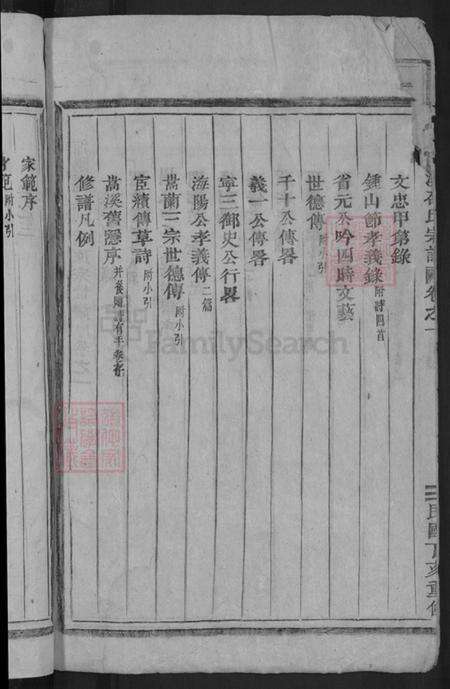 氏宗譜 卷之一
民國丁亥重修
文忠甲第錄
鍾山節孝義錄 附詩四首
省元公吟四時文藝
世德傳 附小引
千十公傳畧
義一公傳畧
寧三御史公行畧
海陽公孝義傳 二篇
嵩蘭三宗世德傳 附小引
宦績傳草詩 附小引
嵩溪舊隱序
修譜凡例
家範序
附小引
FamilySearch